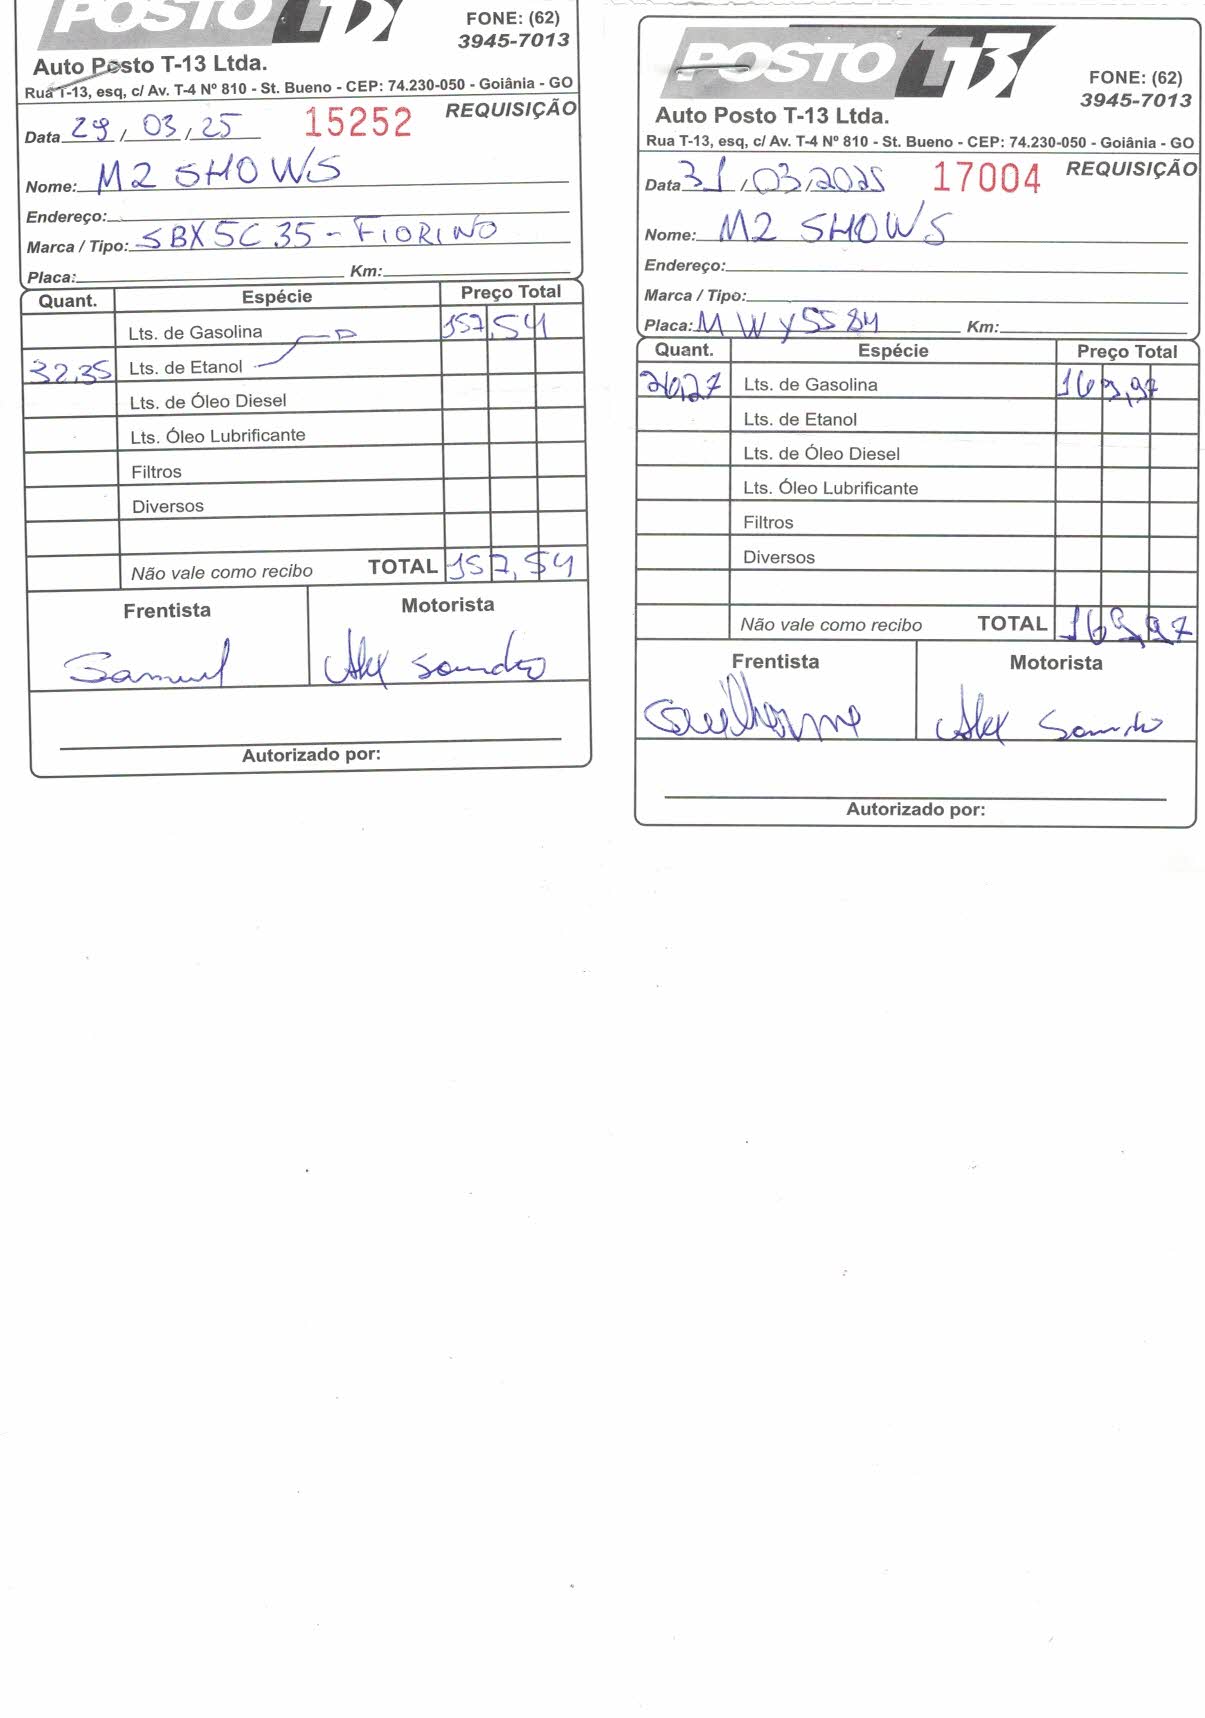 POSTO T13
FONE: (62)
3945-7013
Auto Posto T-13 Ltda.
Rua T-13, esq, c/ Av. T-4 Nº 810 - St. Bueno - CEP: 74.230-050 - Goiânia - GO
REQUISIÇÃO
Data 29 / 03 / 25 15252
Nome: M2 SHOWS
Endereço:
Marca / Tipo: SBX5C35 - FIORINO
Placa: Km:
Quant. Espécie Preço Total
Lts. de Gasolina 157,54
32,35 Lts. de Etanol
Lts. de Óleo Diesel
Lts. Óleo Lubrificante
Filtros
Diversos
Não vale como recibo TOTAL 157,54
Frentista Motorista
Samuel Alex Sandro
Autorizado por:
POSTO T13
FONE: (62)
3945-7013
Auto Posto T-13 Ltda.
Rua T-13, esq, c/ Av. T-4 Nº 810 - St. Bueno - CEP: 74.230-050 - Goiânia - GO
REQUISIÇÃO
Data 31 / 03 / 2025 17004
Nome: M2 SHOWS
Endereço:
Marca / Tipo:
Placa: MWY5584 Km:
Quant. Espécie Preço Total
26,27 Lts. de Gasolina 163,97
Lts. de Etanol
Lts. de Óleo Diesel
Lts. Óleo Lubrificante
Filtros
Diversos
Não vale como recibo TOTAL 163,97
Frentista Motorista
Guilherme Alex Sandro
Autorizado por: